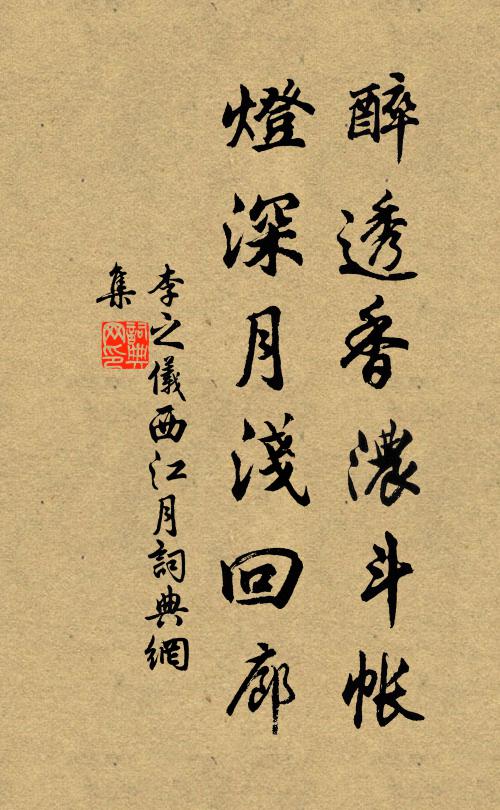 醉透香濃斗帳
燈深月淺回廊
李之儀西江月詞典網
集
詞典
网印